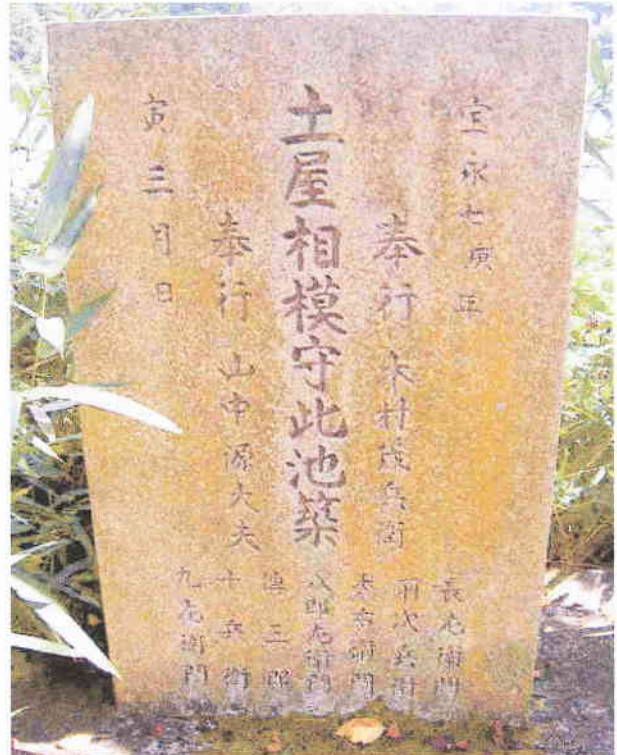 宝永七庚正
奉行 木村茂兵衛
土屋相模守此池築
奉行 山中源大夫
寅三月日
長左衛門
八郎左衛門
傳三郎
十兵衛
九左衛門